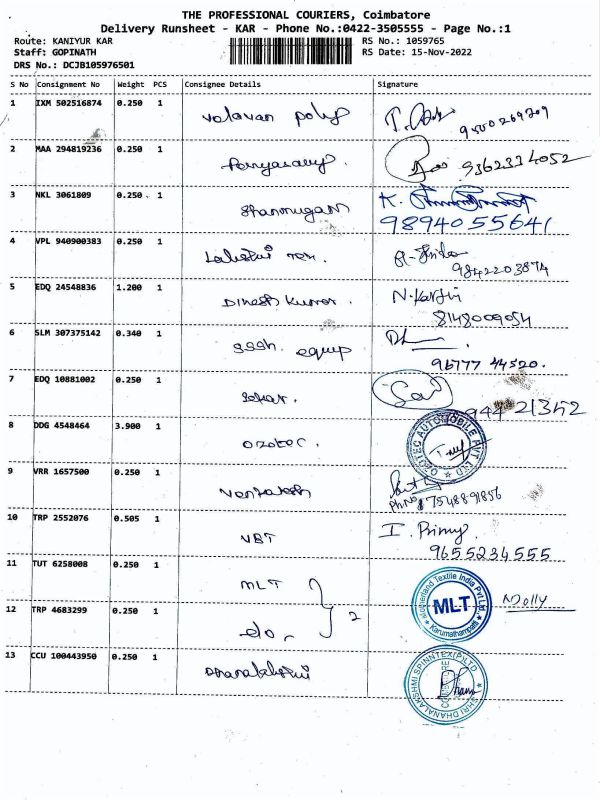 THE PROFESSIONAL COURIERS, Coimbatore
Delivery Runsheet - KAR - Phone No.:0422-3505555 - Page No.:1
Route: KANIYUR KAR RS No.: 1059765
Staff: GOPINATH RS Date: 15-Nov-2022
DRS No.: DCJB105976501
S No Consignment No Weight PCS Consignee Details Signature
1 IXM 502516874 0.250 1 valavan
2 MAA 294819236 0.250 1 9362334052
3 NKL 3061809 0.250 1 Shanmugam K.
9894055641
4 VPL 940900383 0.250 1
9842203874
5 EDQ 24548836 1.200 1 Dinesh Kumar. N.
8148009054
6 SLM 307375142 0.340 1 equip
96777 44520.
7 EDQ 10881002 0.250 1
8 DDG 4548464 3.900 1 AUTOMOBILE PVT LTD
9 VRR 1657500 0.250 1 Venkatesh
Ph No: 7548891856
10 TRP 2552076 0.505 1 VBT I.
9655234555
11 TUT 6258008 0.250 1 MLT
Textile India Pvt Ltd. MLT Karumathampatti Molly
12 TRP 4683299 0.250 1 do. 2
13 CCU 100443950 0.250 1 Dhanalakshmi
SHRI DHANALAKSHMI SPINNTEX (P) LTD COIMBATORE